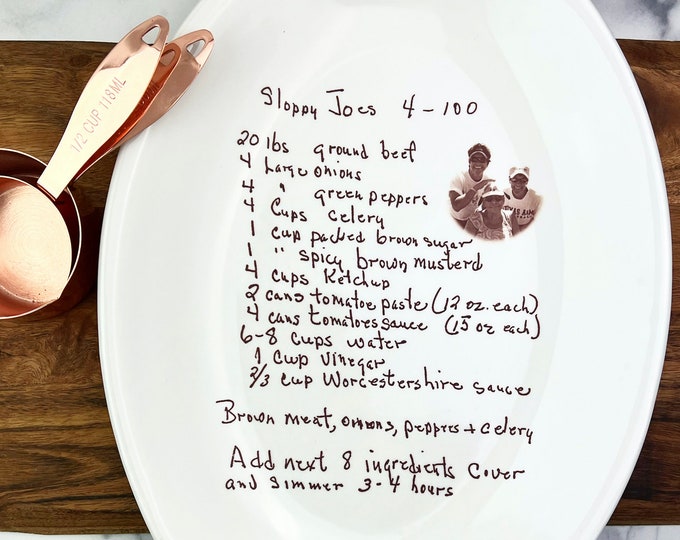 Sloppy Joes 4-100
20 lbs ground beef
4 Large onions
4 " green peppers
4 Cups celery
1 cup packed brown sugar
1 " spicy brown musterd
4 cups Ketchup
2 cans tomatoe paste (12 oz. each)
4 cans tomatoes sauce (15 oz each)
6-8 cups water
1 cup vinegar
2/3 cup Worcestershire sauce
Brown meat, onions, peppres + celery
Add next 8 ingredients cover
and simmer 3-4 hours
1/2 CUP 118ML